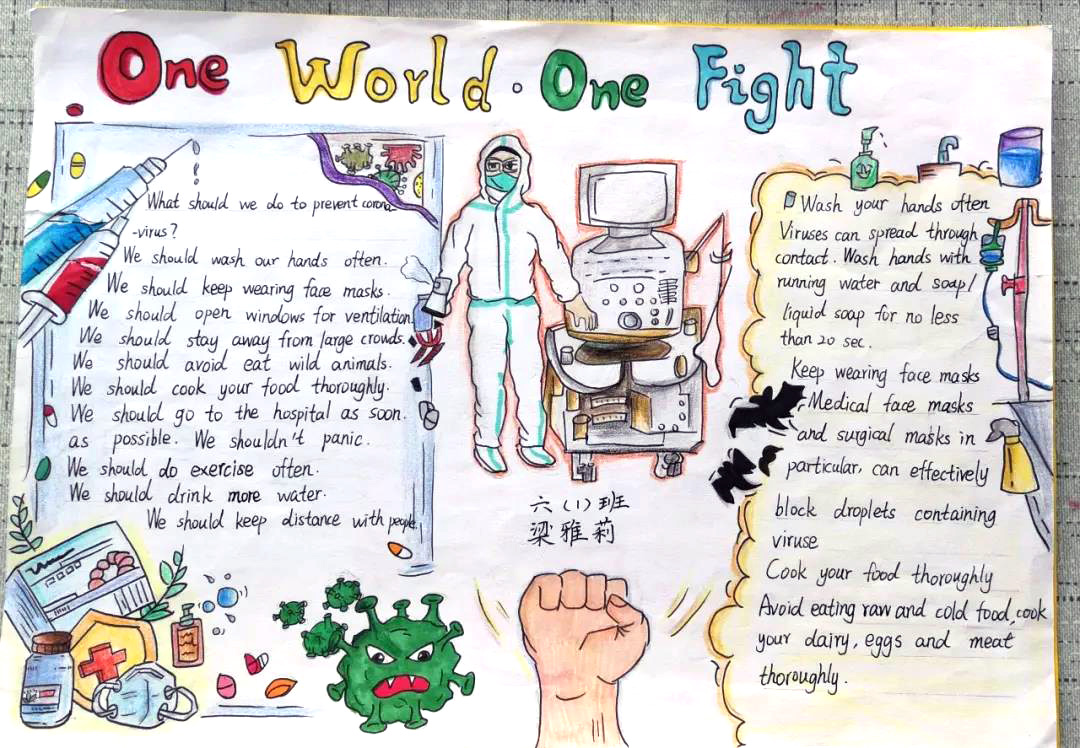 One World · One Fight
What should we do to prevent corona
-virus?
We should wash our hands often.
We should keep wearing face masks.
We should open windows for ventilation
We should stay away from large crowds.
We should avoid eat wild animals.
We should cook your food thoroughly.
We should go to the hospital as soon.
as possible. We shouldn't panic.
We should do exercise often.
We should drink more water.
We should keep distance with people.
六(1)班
梁雅莉
Wash your hands often
Viruses can spread through
contact. Wash hands with
running water and soap/
liquid soap for no less
than 20 sec.
Keep wearing face masks
Medical face masks
and surgical masks in
particular, can effectively
block droplets containing
viruse
Cook your food thoroughly
Avoid eating raw and cold food, cook
your dairy, eggs and meat
thoroughly.